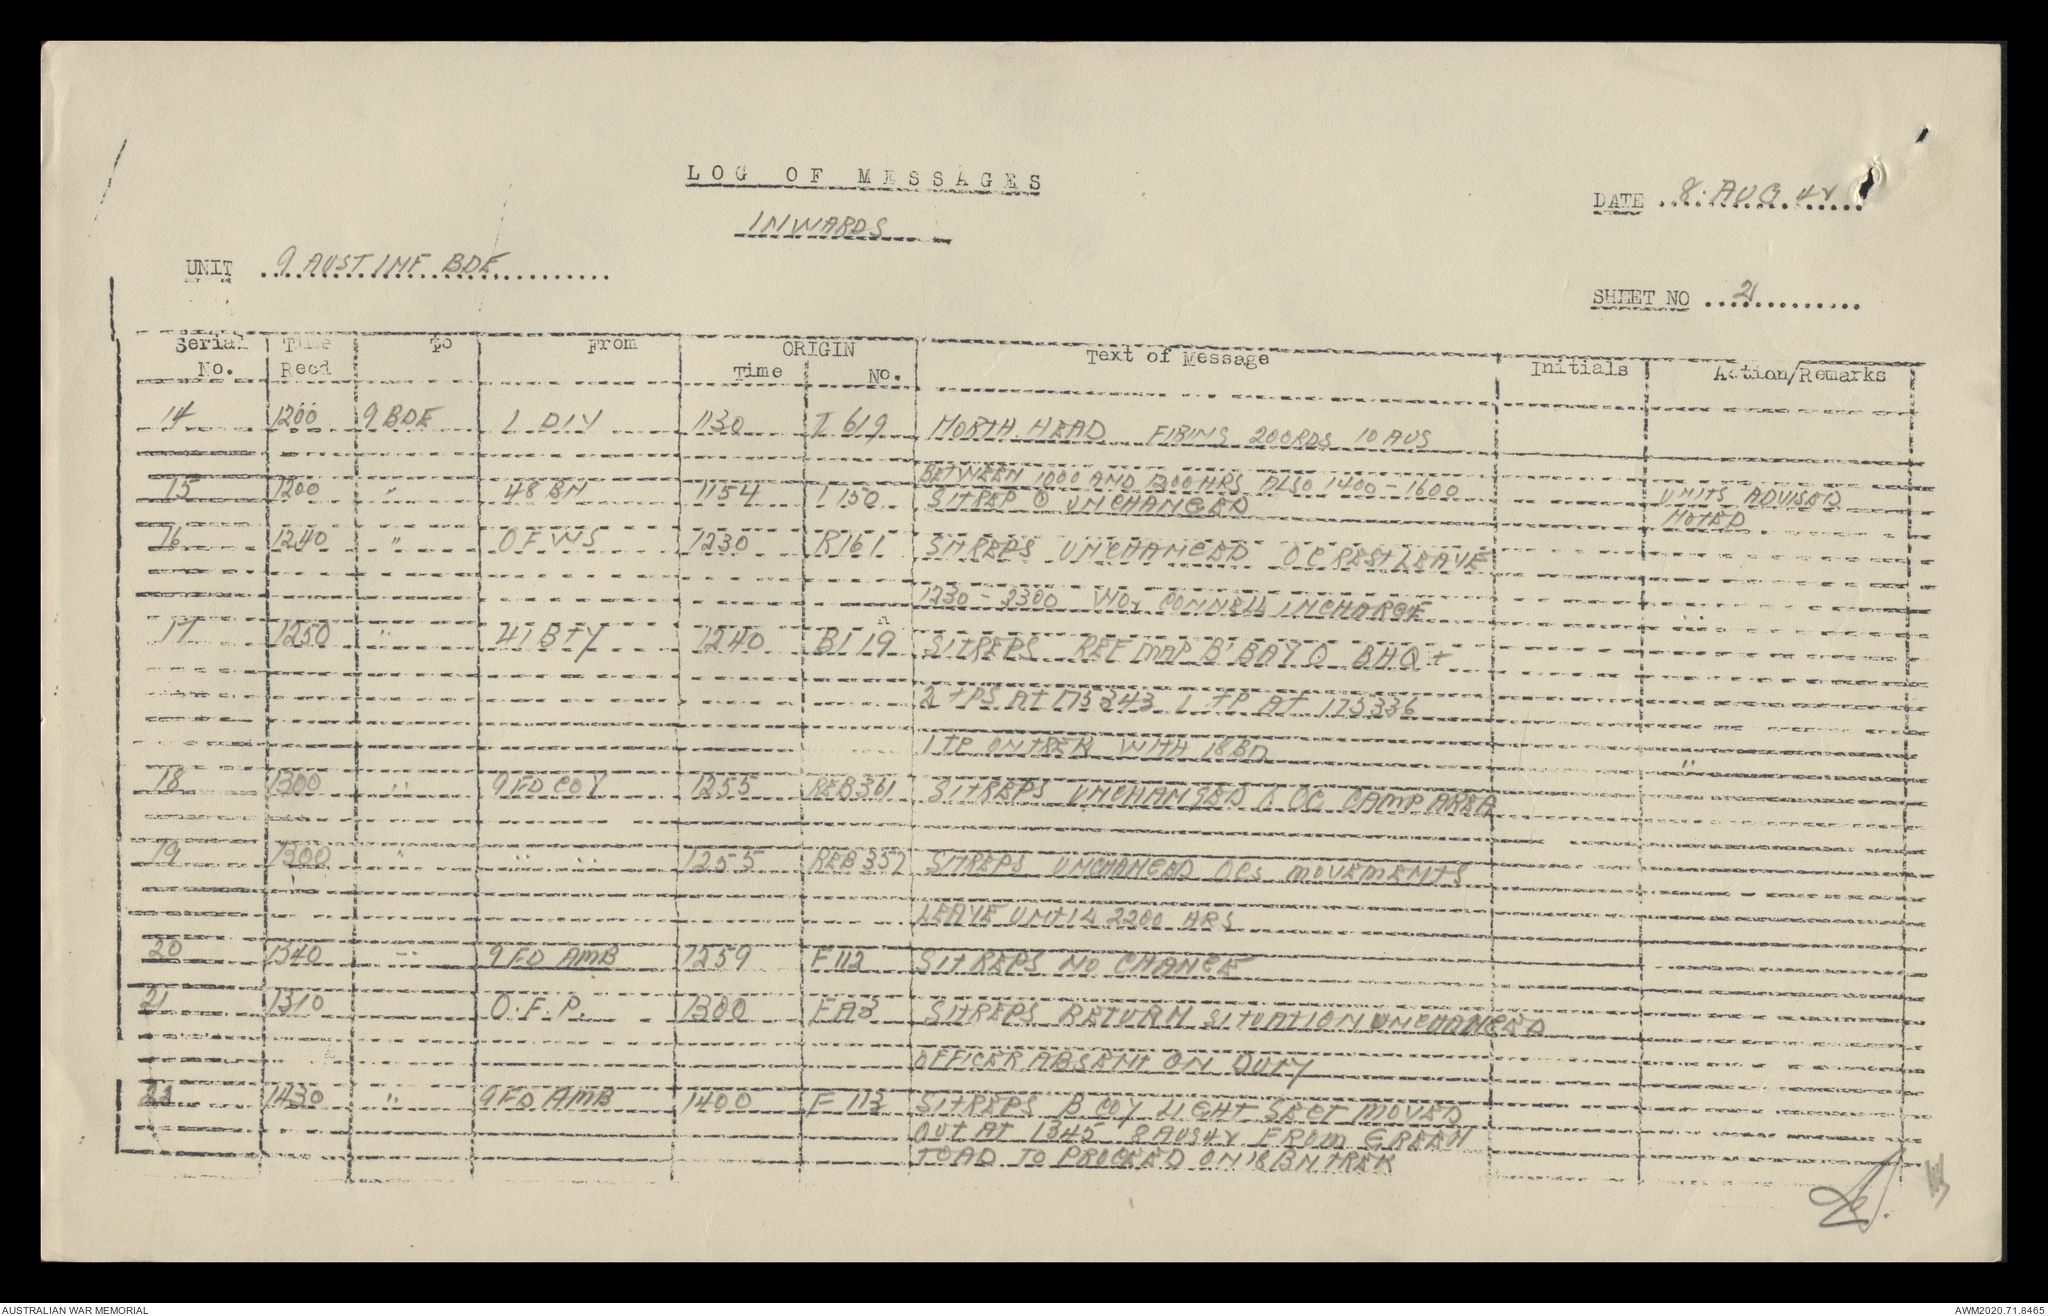 LOG OF MESSAGES
INWARDS
DATE 8. AUG 42
UNIT 9 AUST INF BDE
SHEET NO 2
Serial No. Time Recd To From ORIGIN Time No. Text of Message Initials Action/Remarks
14 1200 9 BDE 1 DIV 1130 I 619 NORTH HEAD FIRING 200 RDS 10 AUG
BETWEEN 1000 AND 1200 HRS ALSO 1400 - 1600 UNITS ADVISED
15 1200 " 48 BN 1154 I 150 SITREP UNCHANGED NOTED
16 1240 " OFWS 1230 R161 SITREPS UNCHANGED OC REST LEAVE
1230 - 2300 WO2 CONNELL INCHARGE "
17 1250 " 41 BTY 1240 B119 SITREPS REF MAP B'BAY BHQ +
2 TPS AT 175343 1 TP AT 175336
1 TP ON TREK WITH 18 BN "
18 1300 " 9 FD COY 1255 REB361 SITREPS UNCHANGED OC CAMP AREA
19 1300 " " " 1255 REB357 SITREPS UNCHANGED OCS MOVEMENTS
LEAVE UNTIL 2200 HRS
20 1340 " 9 FD AMB 1259 F112 SITREPS NO CHANGE
21 1310 O.F.P. 1300 FA3 SITREPS RETURN SITUATION UNCHANGED
OFFICER ABSENT ON DUTY
1430 " 9 FD AMB 1400 F 113 SITREPS B COY LIGHT SECT MOVED
OUT AT 1345 8 AUG 42 FROM GREEN
TOAD TO PROCEED ON 18 BN TREK
AUSTRALIAN WAR MEMORIAL
AWM2020.71.8465